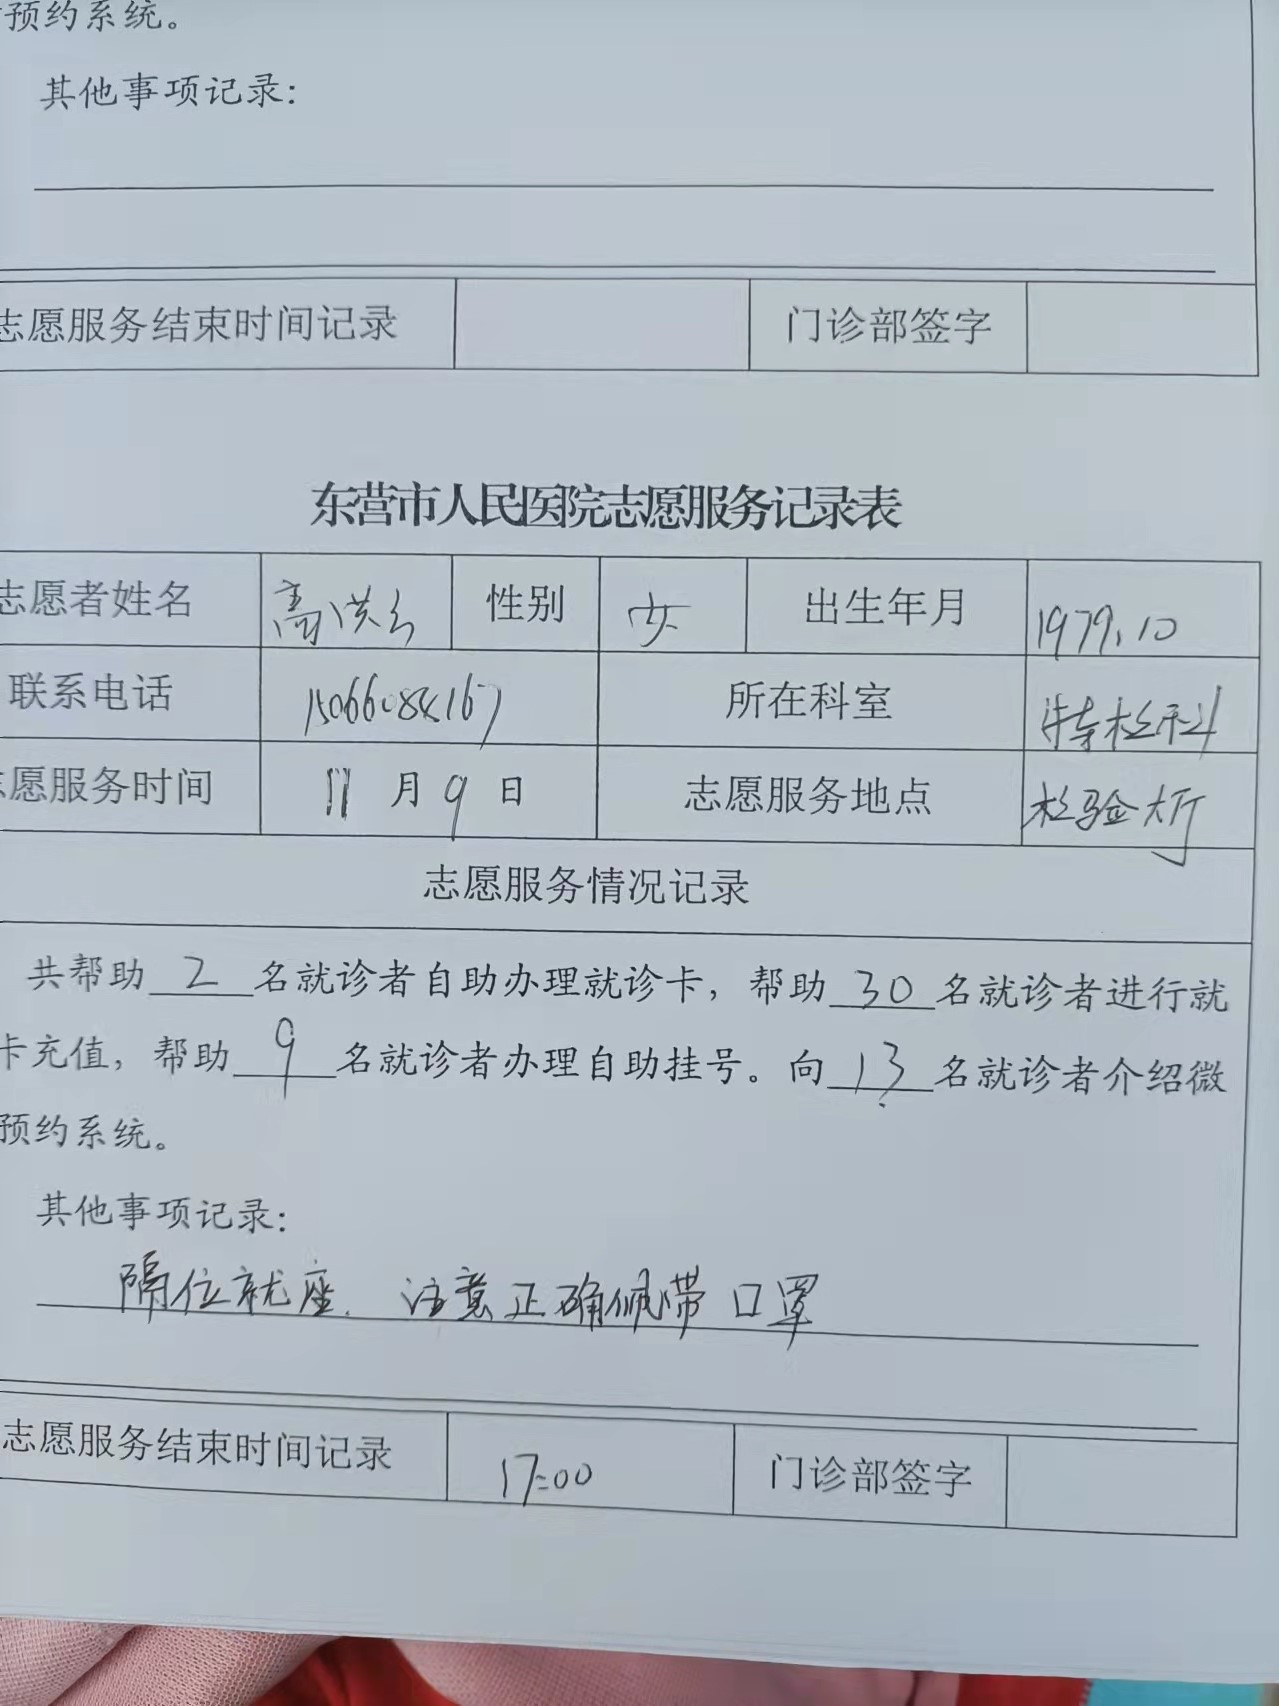 预约系统。
其他事项记录：
志愿服务结束时间记录 门诊部签字
东营市人民医院志愿服务记录表
志愿者姓名 高洪云 性别 女 出生年月 1979.10
联系电话 所在科室 特检科
志愿服务时间 11月9日 志愿服务地点 检验大厅
志愿服务情况记录
共帮助2名就诊者自助办理就诊卡，帮助30名就诊者进行就
卡充值，帮助9名就诊者办理自助挂号。向13名就诊者介绍微
预约系统。
其他事项记录：
隔位就座. 注意正确佩带口罩
志愿服务结束时间记录 17:00 门诊部签字